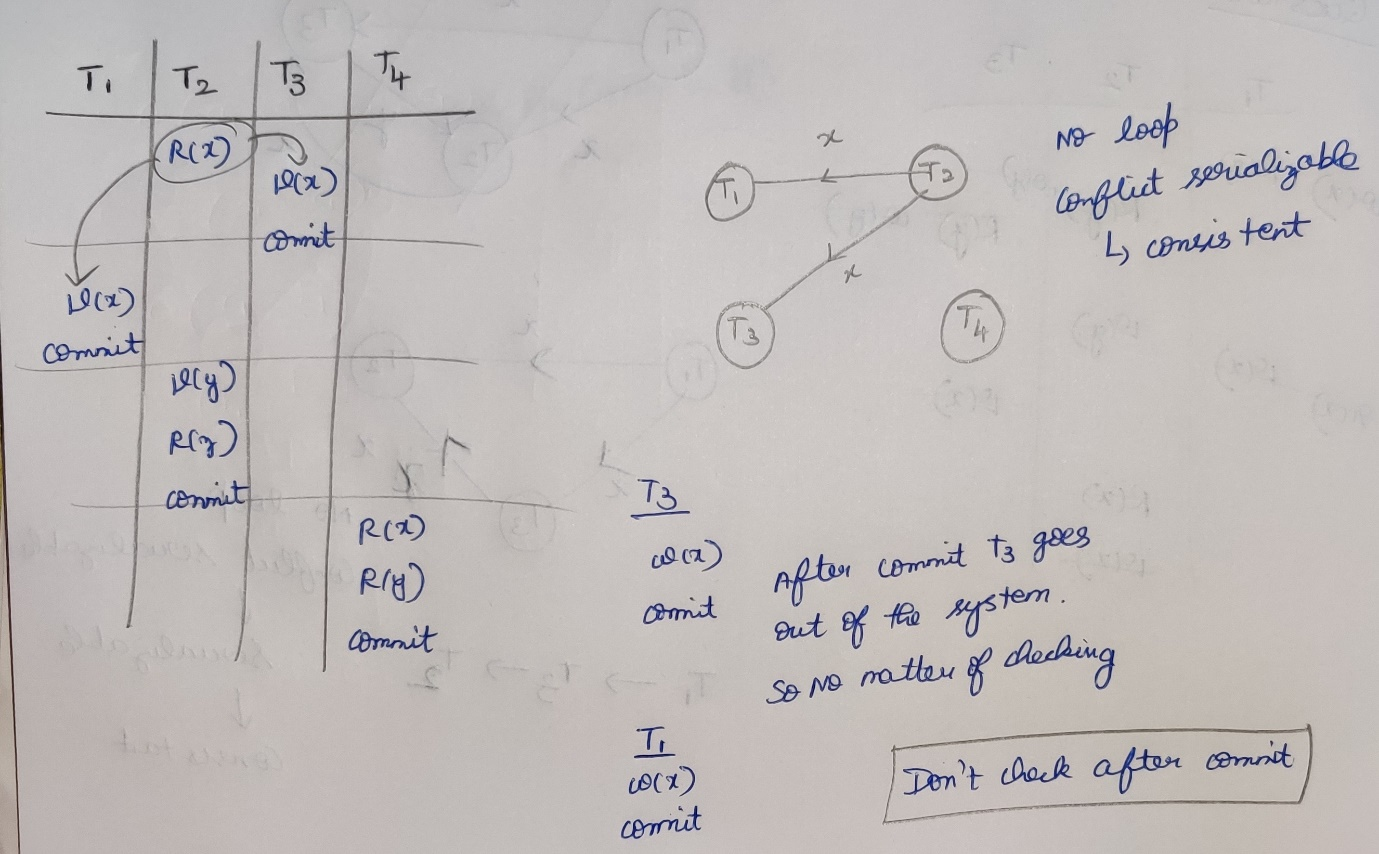 T1 T2 T3 T4
R(x)
W(x)
commit
W(x)
commit
W(y)
R(z)
commit
R(x)
R(y)
commit
x
T1 T2
x
T3 T4
No loop
conflict serializable
↳ consistent
T3
W(x)
commit
After commit T3 goes
out of the system.
So No matter of checking
T1
W(x)
commit
Don't check after commit